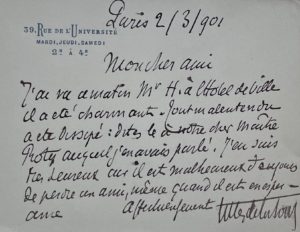 Paris 2/3/901
39. RUE DE L'UNIVERSITÉ
MARDI, JEUDI, SAMEDI
2h à 4h
Mon cher ami
J'ai vu ce matin Mr H. à l'Hôtel de Ville
il a été charmant. Tout malentendu
a été dissipé : dites le à notre cher Maître
auquel j'en avais parlé. J'en suis
très heureux car il est malheureux toujours
de perdre un ami, même quand il est en
Affectueusement